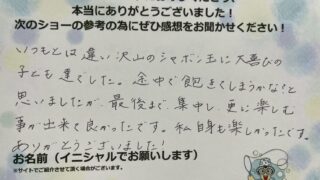 本当にありがとうございました！
次のショーの参考の為にぜひ感想をお聞かせください！
いつもとは違い沢山のシャボン玉に大喜びの
子ども達でした。途中で飽きてしまうかな？と
思いましたが、最後まで集中し、更に楽しむ
事が出来て良かったです。私自身も楽しかったです。
ありがとうございました！
お名前（イニシャルでお願いします）
※サイトでご紹介させて頂く場合がございます。